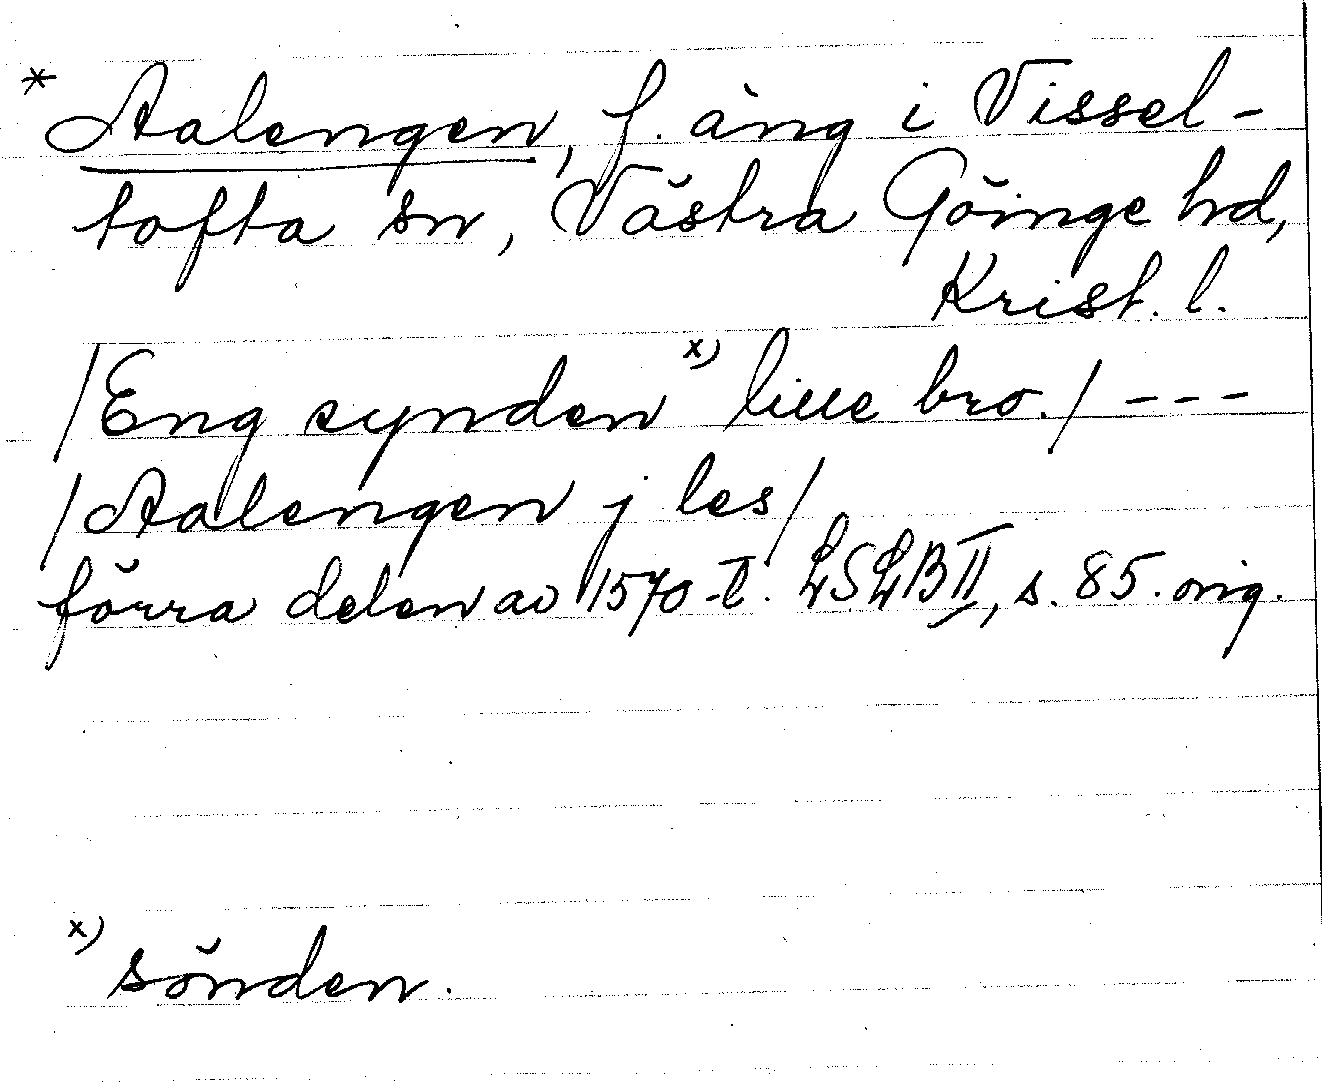 * Aalengen, f. äng i Vissel-
tofta sn, Västra Göinge hd,
Krist. l.
/Eng synden x) lille bro./ ---
/Aalengen j les/
förra delen av 1570-t. LSLB II, s. 85. orig.
x) sönden.